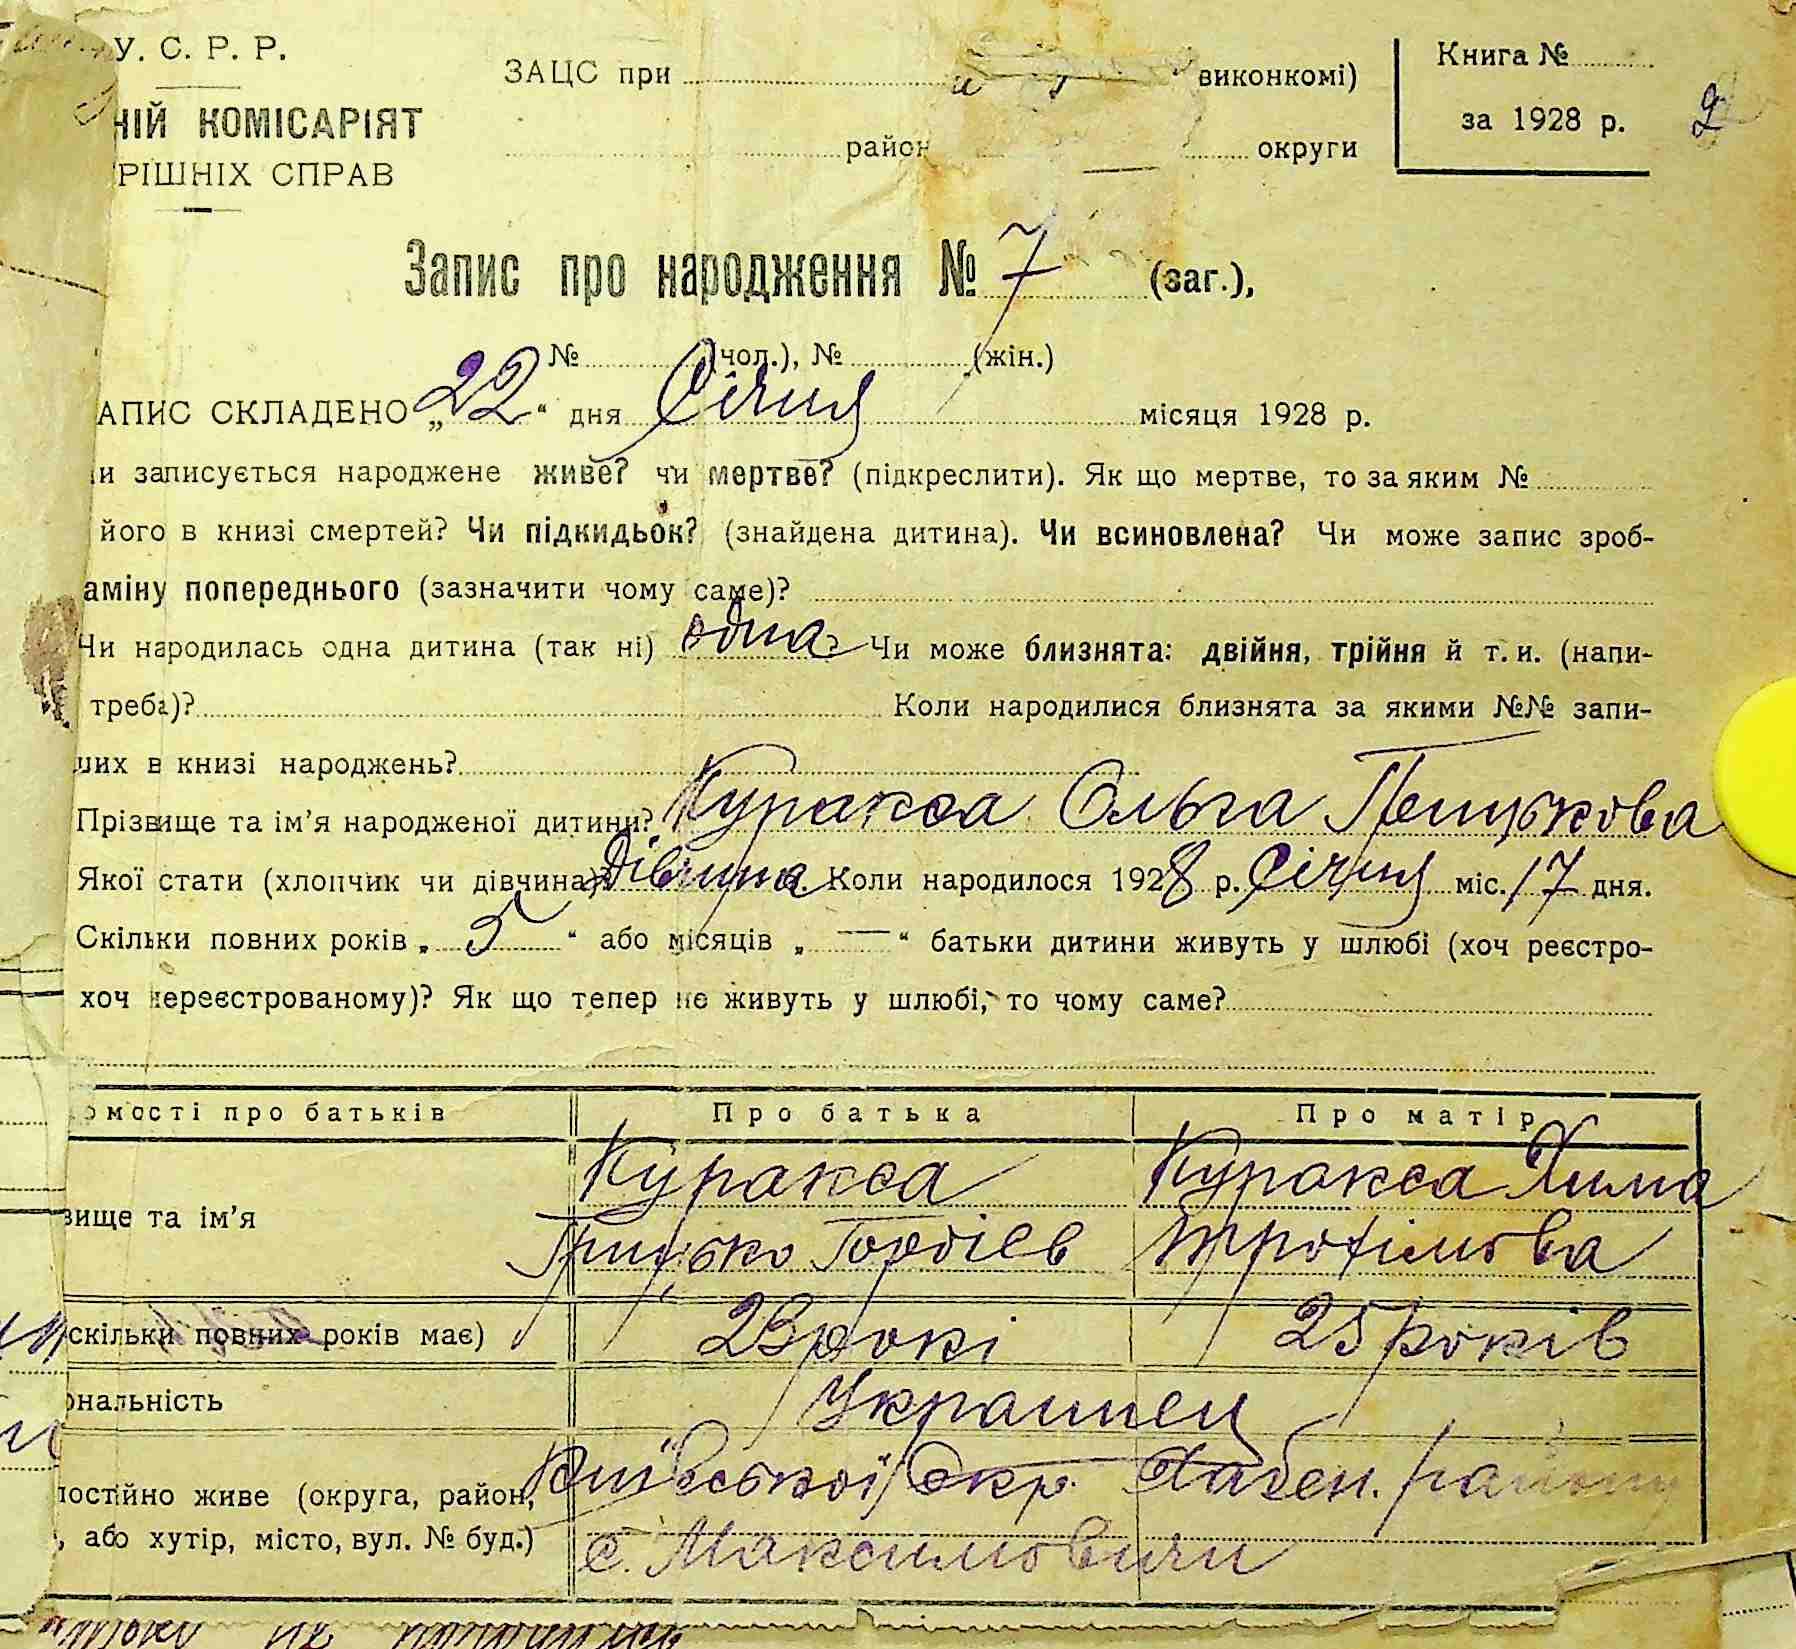 У. С. Р. Р.
НІЙ КОМІСАРІЯТ
РІШНІХ СПРАВ
ЗАЦС при виконкомі)
район округи
Книга №
за 1928 р.
Запис про народження № 7 (заг.),
№ (чол.), № (жін.)
АПИС СКЛАДЕНО „22“ дня Січня місяця 1928 р.
и записується народжене живе? чи мертве? (підкреслити). Як що мертве, то за яким №
його в книзі смертей? Чи підкидьок? (знайдена дитина). Чи всиновлена? Чи може запис зроб-
аміну попереднього (зазначити чому саме)?
Чи народилась одна дитина (так ні) одна? Чи може близнята: двійня, трійня й т. и. (напи-
треба)? Коли народилися близнята за якими №№ запи-
их в книзі народжень?
Прізвище та ім’я народженої дитини? Куракса Ольга
Якої статі (хлопчик чи дівчина)? Дівчина. Коли народилося 1928 р. Січня міс. 17 дня.
Скільки повних років „ 5 “ або місяців „ — “ батьки дитини живуть у шлюбі (хоч реєстро-
хоч нереєстрованому)? Як що тепер не живуть у шлюбі, то чому саме?
омості про батьків Про батька Про матір
вище та ім’я Куракса Куракса Хима
Грицько Гордіев Трохімова
скільки повних років має) 23 рокі 25 років
ональність Украинец
постійно живе (округа, район, Київської Окр. Хабен. району
, або хутір, місто, вул. № буд.) с. Максимовичи